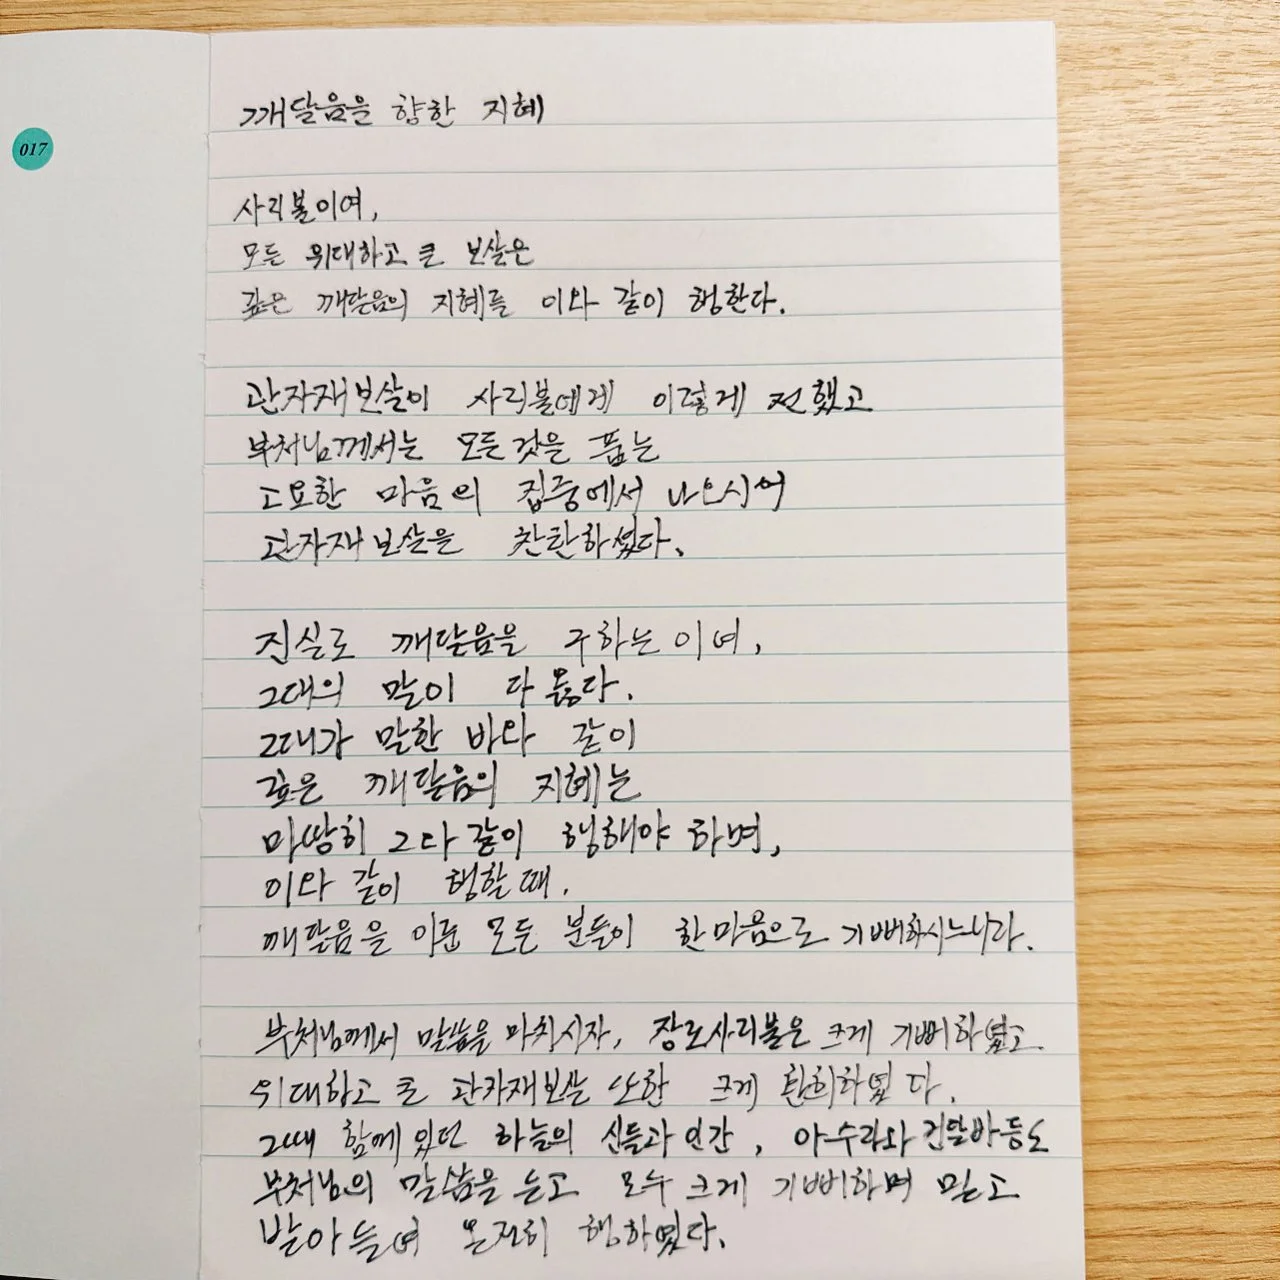 017
깨달음을 향한 지혜
사리불이여,
모든 위대하고 큰 보살은
깊은 깨달음의 지혜를 이와 같이 행한다.
관자재보살이 사리불에게 이렇게 전했고
부처님께서는 모든것을 품는
고요한 마음의 집중에서 나오시어
관자재보살을 찬탄하셨다.
진실로 깨달음을 구하는 이여,
그대의 말이 다 옳다.
그대가 말한 바와 같이
깊은 깨달음의 지혜는
마땅히 그와 같이 행해야 하며,
이와 같이 행할 때.
깨달음을 이룬 모든 분들이 한마음으로 기뻐하시느니라.
부처님께서 말씀을 마치시자, 장로사리불은 크게 기뻐하였고
위대하고 큰 관자재보살 또한 크게 환희하였다.
그때 함께 있던 하늘의 신들과 인간, 아수라와 건달바 등도
부처님의 말씀을 듣고 모두 크게 기뻐하며 믿고
받아들여 온전히 행하였다.